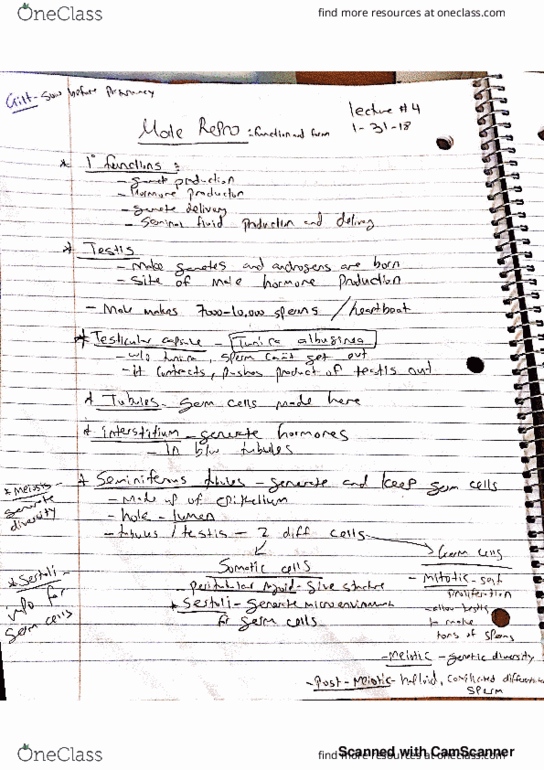 OneClass
find more resources at oneclass.com
Gilt - sow before Pregnancy
lecture #4
1-31-18
Male Repro: function and form
* 1° functions:
- gamete production
- Hormone production
- gamete delivery
- Seminal fluid production and delivery
* Testis
- Male gametes and androgens are born
- Site of male hormone production
- Male makes 7000-10,000 sperms / heartbeat
* Testicular capsule - Tunica albuginea
- w/o tunica, sperm can't get out
- it contracts, pushes product of testis out
* Tubules - germ cells made here
* interstitium - generate hormones
- In b/w tubules
* Seminiferus tubules - generate and keep germ cells
- Made up of epithelium
- hole - lumen
- tubules / testis - 2 diff cells
Somatic cells
- peritubular myoid - give structure
* Sertoli - generate microenvironment
for germ cells
Germ cells
- Mitotic -
proliferation
- allow testis
to make
tons of sperm
- Meiotic - genetic diversity
- Post-Meiotic - haploid, complicated
sperm
* Meiosis -
generate
diversity
* Sertoli -
info for
germ cells
OneClass
find more resources at oneclass.com
Scanned with CamScanner